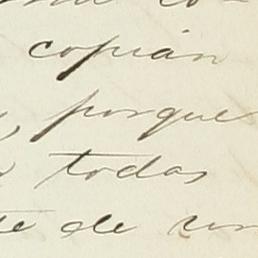 copián
porque
todas
te de un